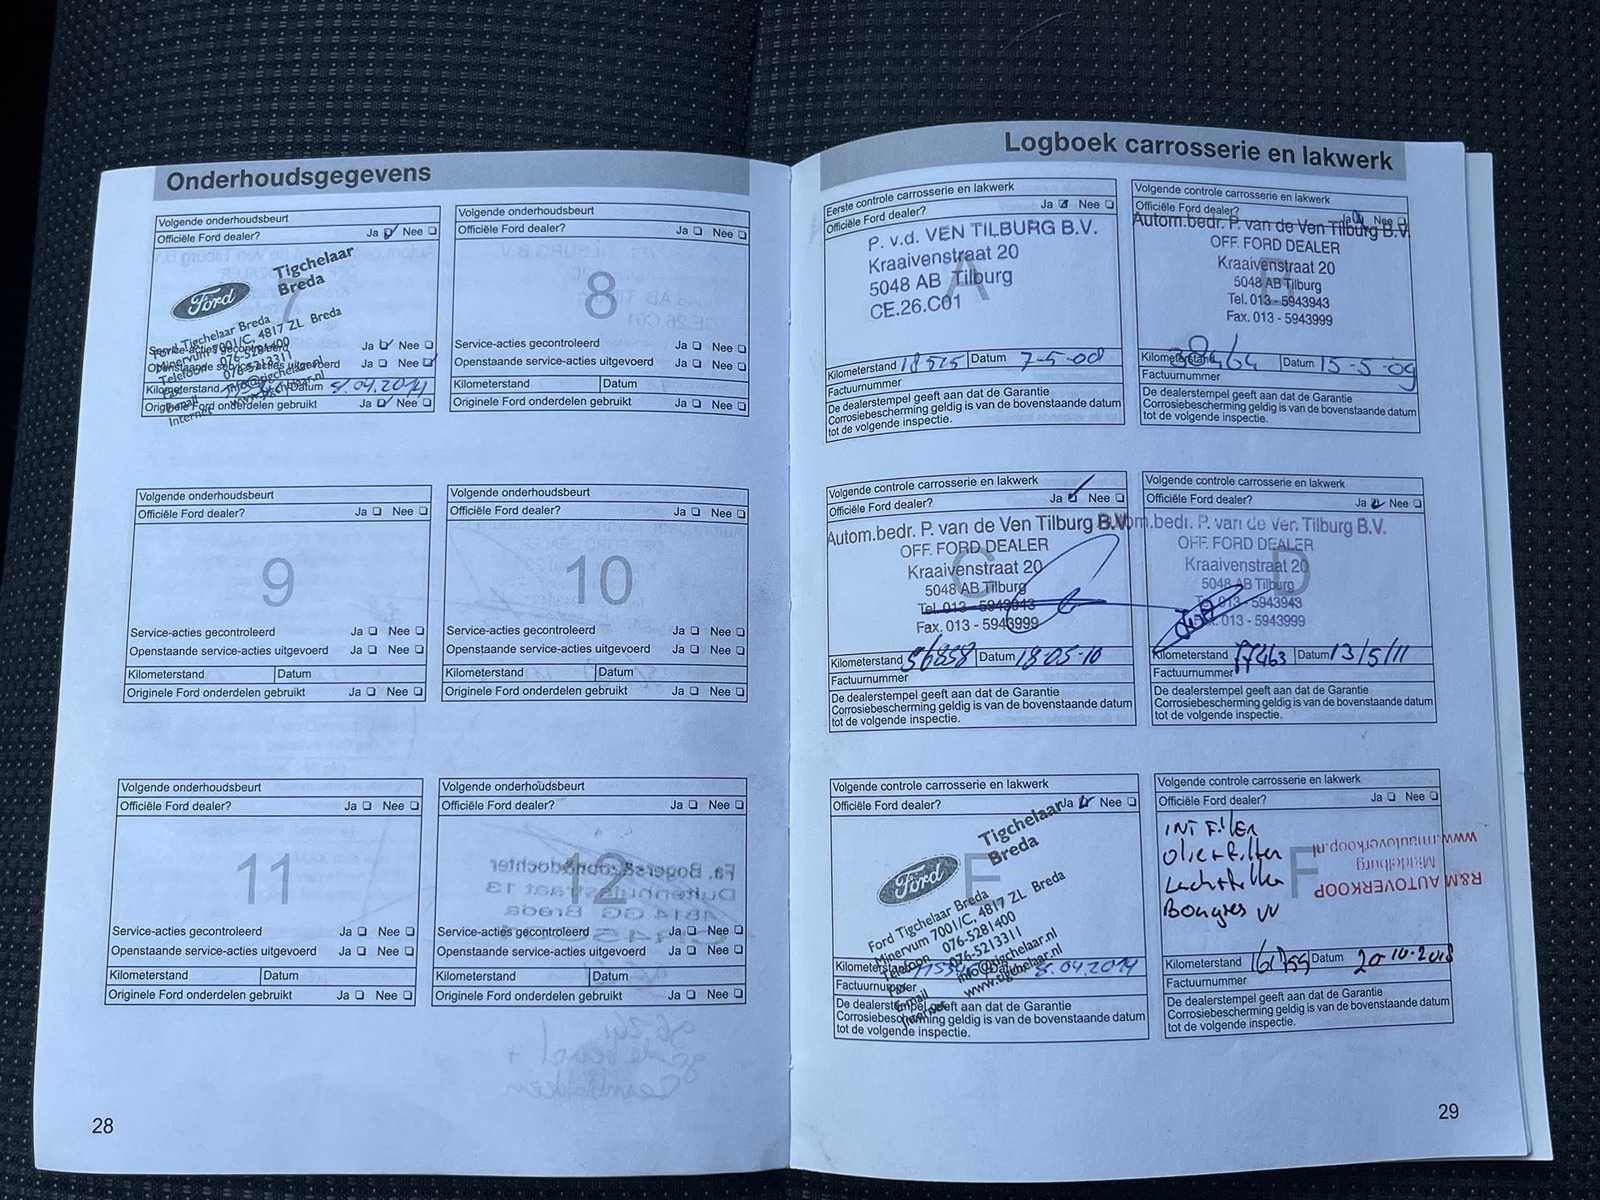 Onderhoudsgegevens
Volgende onderhoudsbeurt
Officiële Ford dealer? Ja Nee
7
Tigchelaar
Breda
Ford
Ford Tigchelaar Breda
Minervum 7001/C, 4817 ZL Breda
Telefoon 076-5281400
076-5213311
E-mail info@tigchelaar.nl
Internet
Service-acties gecontroleerd Ja Nee
Openstaande service-acties uitgevoerd Ja Nee
Kilometerstand Datum 8.04.2014
Originele Ford onderdelen gebruikt Ja Nee
Volgende onderhoudsbeurt
Officiële Ford dealer? Ja Nee
8
Service-acties gecontroleerd Ja Nee
Openstaande service-acties uitgevoerd Ja Nee
Kilometerstand Datum
Originele Ford onderdelen gebruikt Ja Nee
Volgende onderhoudsbeurt
Officiële Ford dealer? Ja Nee
9
Service-acties gecontroleerd Ja Nee
Openstaande service-acties uitgevoerd Ja Nee
Kilometerstand Datum
Originele Ford onderdelen gebruikt Ja Nee
Volgende onderhoudsbeurt
Officiële Ford dealer? Ja Nee
10
Service-acties gecontroleerd Ja Nee
Openstaande service-acties uitgevoerd Ja Nee
Kilometerstand Datum
Originele Ford onderdelen gebruikt Ja Nee
Volgende onderhoudsbeurt
Officiële Ford dealer? Ja Nee
11
Service-acties gecontroleerd Ja Nee
Openstaande service-acties uitgevoerd Ja Nee
Kilometerstand Datum
Originele Ford onderdelen gebruikt Ja Nee
Volgende onderhoudsbeurt
Officiële Ford dealer? Ja Nee
12
Service-acties gecontroleerd Ja Nee
Openstaande service-acties uitgevoerd Ja Nee
Kilometerstand Datum
Originele Ford onderdelen gebruikt Ja Nee
28
Logboek carrosserie en lakwerk
Eerste controle carrosserie en lakwerk
Officiële Ford dealer? Ja Nee
A
P. v.d. VEN TILBURG B.V.
Kraaivenstraat 20
5048 AB Tilburg
CE.26.C01
Kilometerstand 18515 Datum 7-5-08
Factuurnummer
De dealerstempel geeft aan dat de Garantie
Corrosiebescherming geldig is van de bovenstaande datum
tot de volgende inspectie.
Volgende controle carrosserie en lakwerk
Officiële Ford dealer? Ja Nee
B
Autom.bedr. P. van de Ven Tilburg B.V.
OFF FORD DEALER
Kraaivenstraat 20
5048 AB Tilburg
Tel. 013 - 5943943
Fax. 013 - 5943999
Kilometerstand 38164 Datum 15-5-09
Factuurnummer
De dealerstempel geeft aan dat de Garantie
Corrosiebescherming geldig is van de bovenstaande datum
tot de volgende inspectie.
Volgende controle carrosserie en lakwerk
Officiële Ford dealer? Ja Nee
C
Autom.bedr. P. van de Ven Tilburg B.V.
OFF. FORD DEALER
Kraaivenstraat 20
5048 AB Tilburg
Tel. 013 - 5943943
Fax. 013 - 5943999
Kilometerstand 56858 Datum 18-05-10
Factuurnummer
De dealerstempel geeft aan dat de Garantie
Corrosiebescherming geldig is van de bovenstaande datum
tot de volgende inspectie.
Volgende controle carrosserie en lakwerk
Officiële Ford dealer? Ja Nee
D
om.bedr. P. van de Ven Tilburg B.V.
OFF. FORD DEALER
Kraaivenstraat 20
5048 AB Tilburg
013 - 5943943
Fax. 013 - 5943999
Kilometerstand 77463 Datum 13/5/11
Factuurnummer
De dealerstempel geeft aan dat de Garantie
Corrosiebescherming geldig is van de bovenstaande datum
tot de volgende inspectie.
Volgende controle carrosserie en lakwerk
Officiële Ford dealer? Ja Nee
E
Tigchelaar
Breda
Ford
Ford Tigchelaar Breda
Minervum 7001/C, 4817 ZL Breda
Telefoon 076-5281400
Fax 076-5213311
E-mail info@tigchelaar.nl
Internet www.tigchelaar.nl
Kilometerstand Datum 8.04.2014
Factuurnummer
De dealerstempel geeft aan dat de Garantie
Corrosiebescherming geldig is van de bovenstaande datum
tot de volgende inspectie.
Volgende controle carrosserie en lakwerk
Officiële Ford dealer? Ja Nee
F
INT FilteR
Olie+filter
Luchtfilter
Bougies vv
R&M AUTOVERKOOP
Middelburg
www.rmautoverkoop.nl
Kilometerstand Datum 20-10-2018
Factuurnummer
De dealerstempel geeft aan dat de Garantie
Corrosiebescherming geldig is van de bovenstaande datum
tot de volgende inspectie.
29